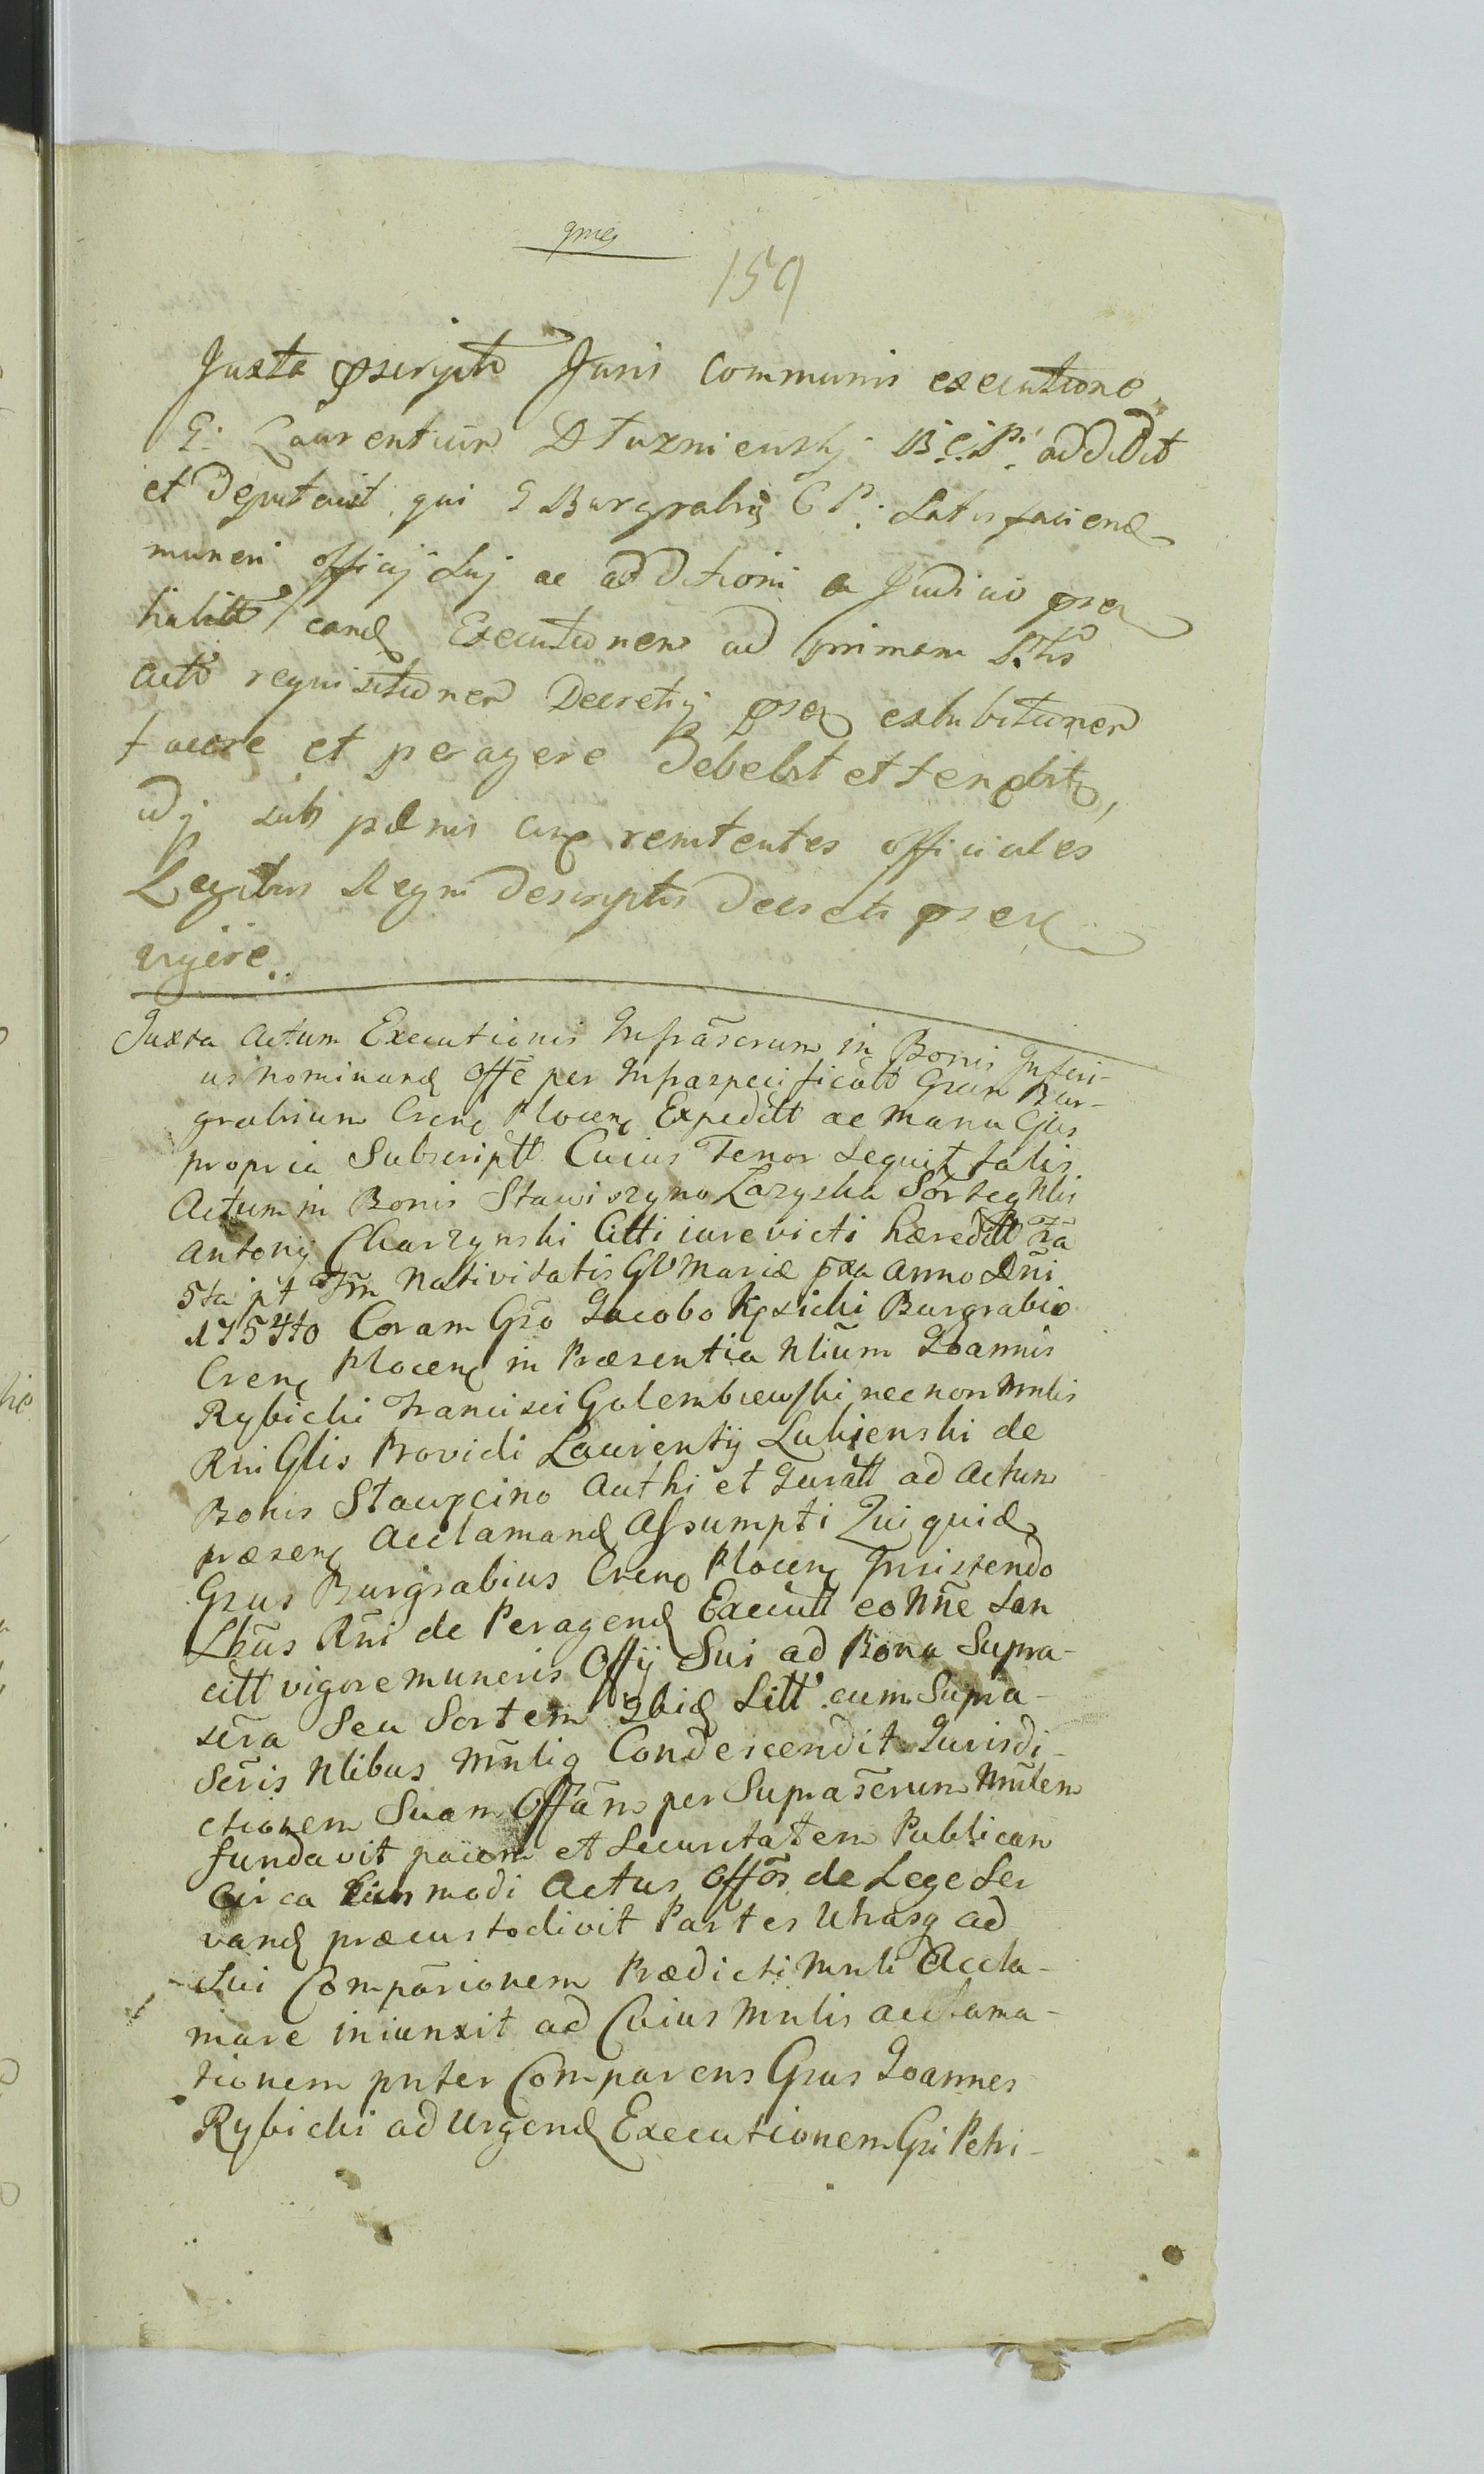 159
Juxta pscriptū Juris Communis executione
G. Laurentium Dłuzniewskj B.C.P. addidit
et Deputavit qui G Burgrabiq C P. Satisfaciend
muneri officij Suj ac additioni a Judicio psen
eand Executionem ad primam
actō requisitionem Decretiq psen exhibitionem
facere et peragere Debebit et tenebit,
idq sub pænis renitentes officiales
Legibus Regni descriptis Decreti psen
vigore.
Juxta Actum Executionis Infrāscrum in Bonis Inferi-
us nominand Offē per Infraspecificatt Grum Bur-
grabium Cren Plocen Expeditt ac manu Eius
propria Subscriptt Cuius Tenor Sequit talis.
Actum in Bonis Stawiszyno Łazyska Sorteq Nlis
Antonij Charzynski Citti iure victi hæreditt Fīa
5ta pt Fm Nativitatis GVMariæ pxa Anno Dnī
1754to Coram Gro Jacobo Kęsicki Burgrabio
Cren Plocen in Præsentia Nlium Joannis
Rybicki Francisci Golembiewski nec non Mnlis
Rni Glis Providi Laurentij Lubienski de
Bonis Staupcino Authi et Juratt ad Actum
præsen Acclamand Assumpti Qui quid
Grus Burgrabius Cren Plocen Insistendo
Lbus Rni de Peragend Executt eo Nne San
citt vigore muneris Offij Sui ad Bona Supra-
scra Seu Sortem Ibid Sitt cum Supra-
Scris Nlibus Mnliq Condescendit Jurisdi-
ctionem Suam Offam per Suprascrum Mnlem
fundavit pacem et Securitatem Publican
Circa Eiusmodi Actus Offos de Lege Ser
vand præcustodivit Partes Utrasq ad
Sui Compārionem Prædicti Mnli Accla-
mare iniunxit ad Cuius Mnlis acclama-
tionem pnter Comparens Grus Joannes
Rybicki ad Urgend Executionem Gri Petri-